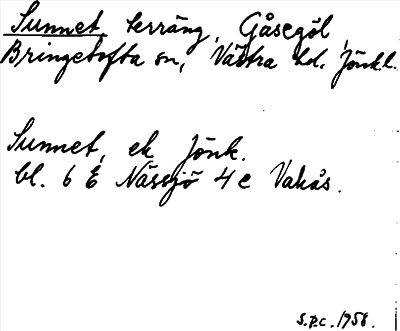 Sunnet, terräng, Gåsegöl,
Bringetofta sn, Västra hd. Jönk.l.
Sunnet, ek Jönk.
bl. 6 E Nässjö 4 e Vakås.
s.p.c. 1958.